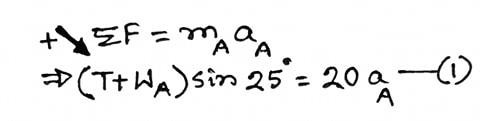 +↘ ΣF = m_A a_A
⇒ (T + W_A) sin 25° = 20 a_A —(1)